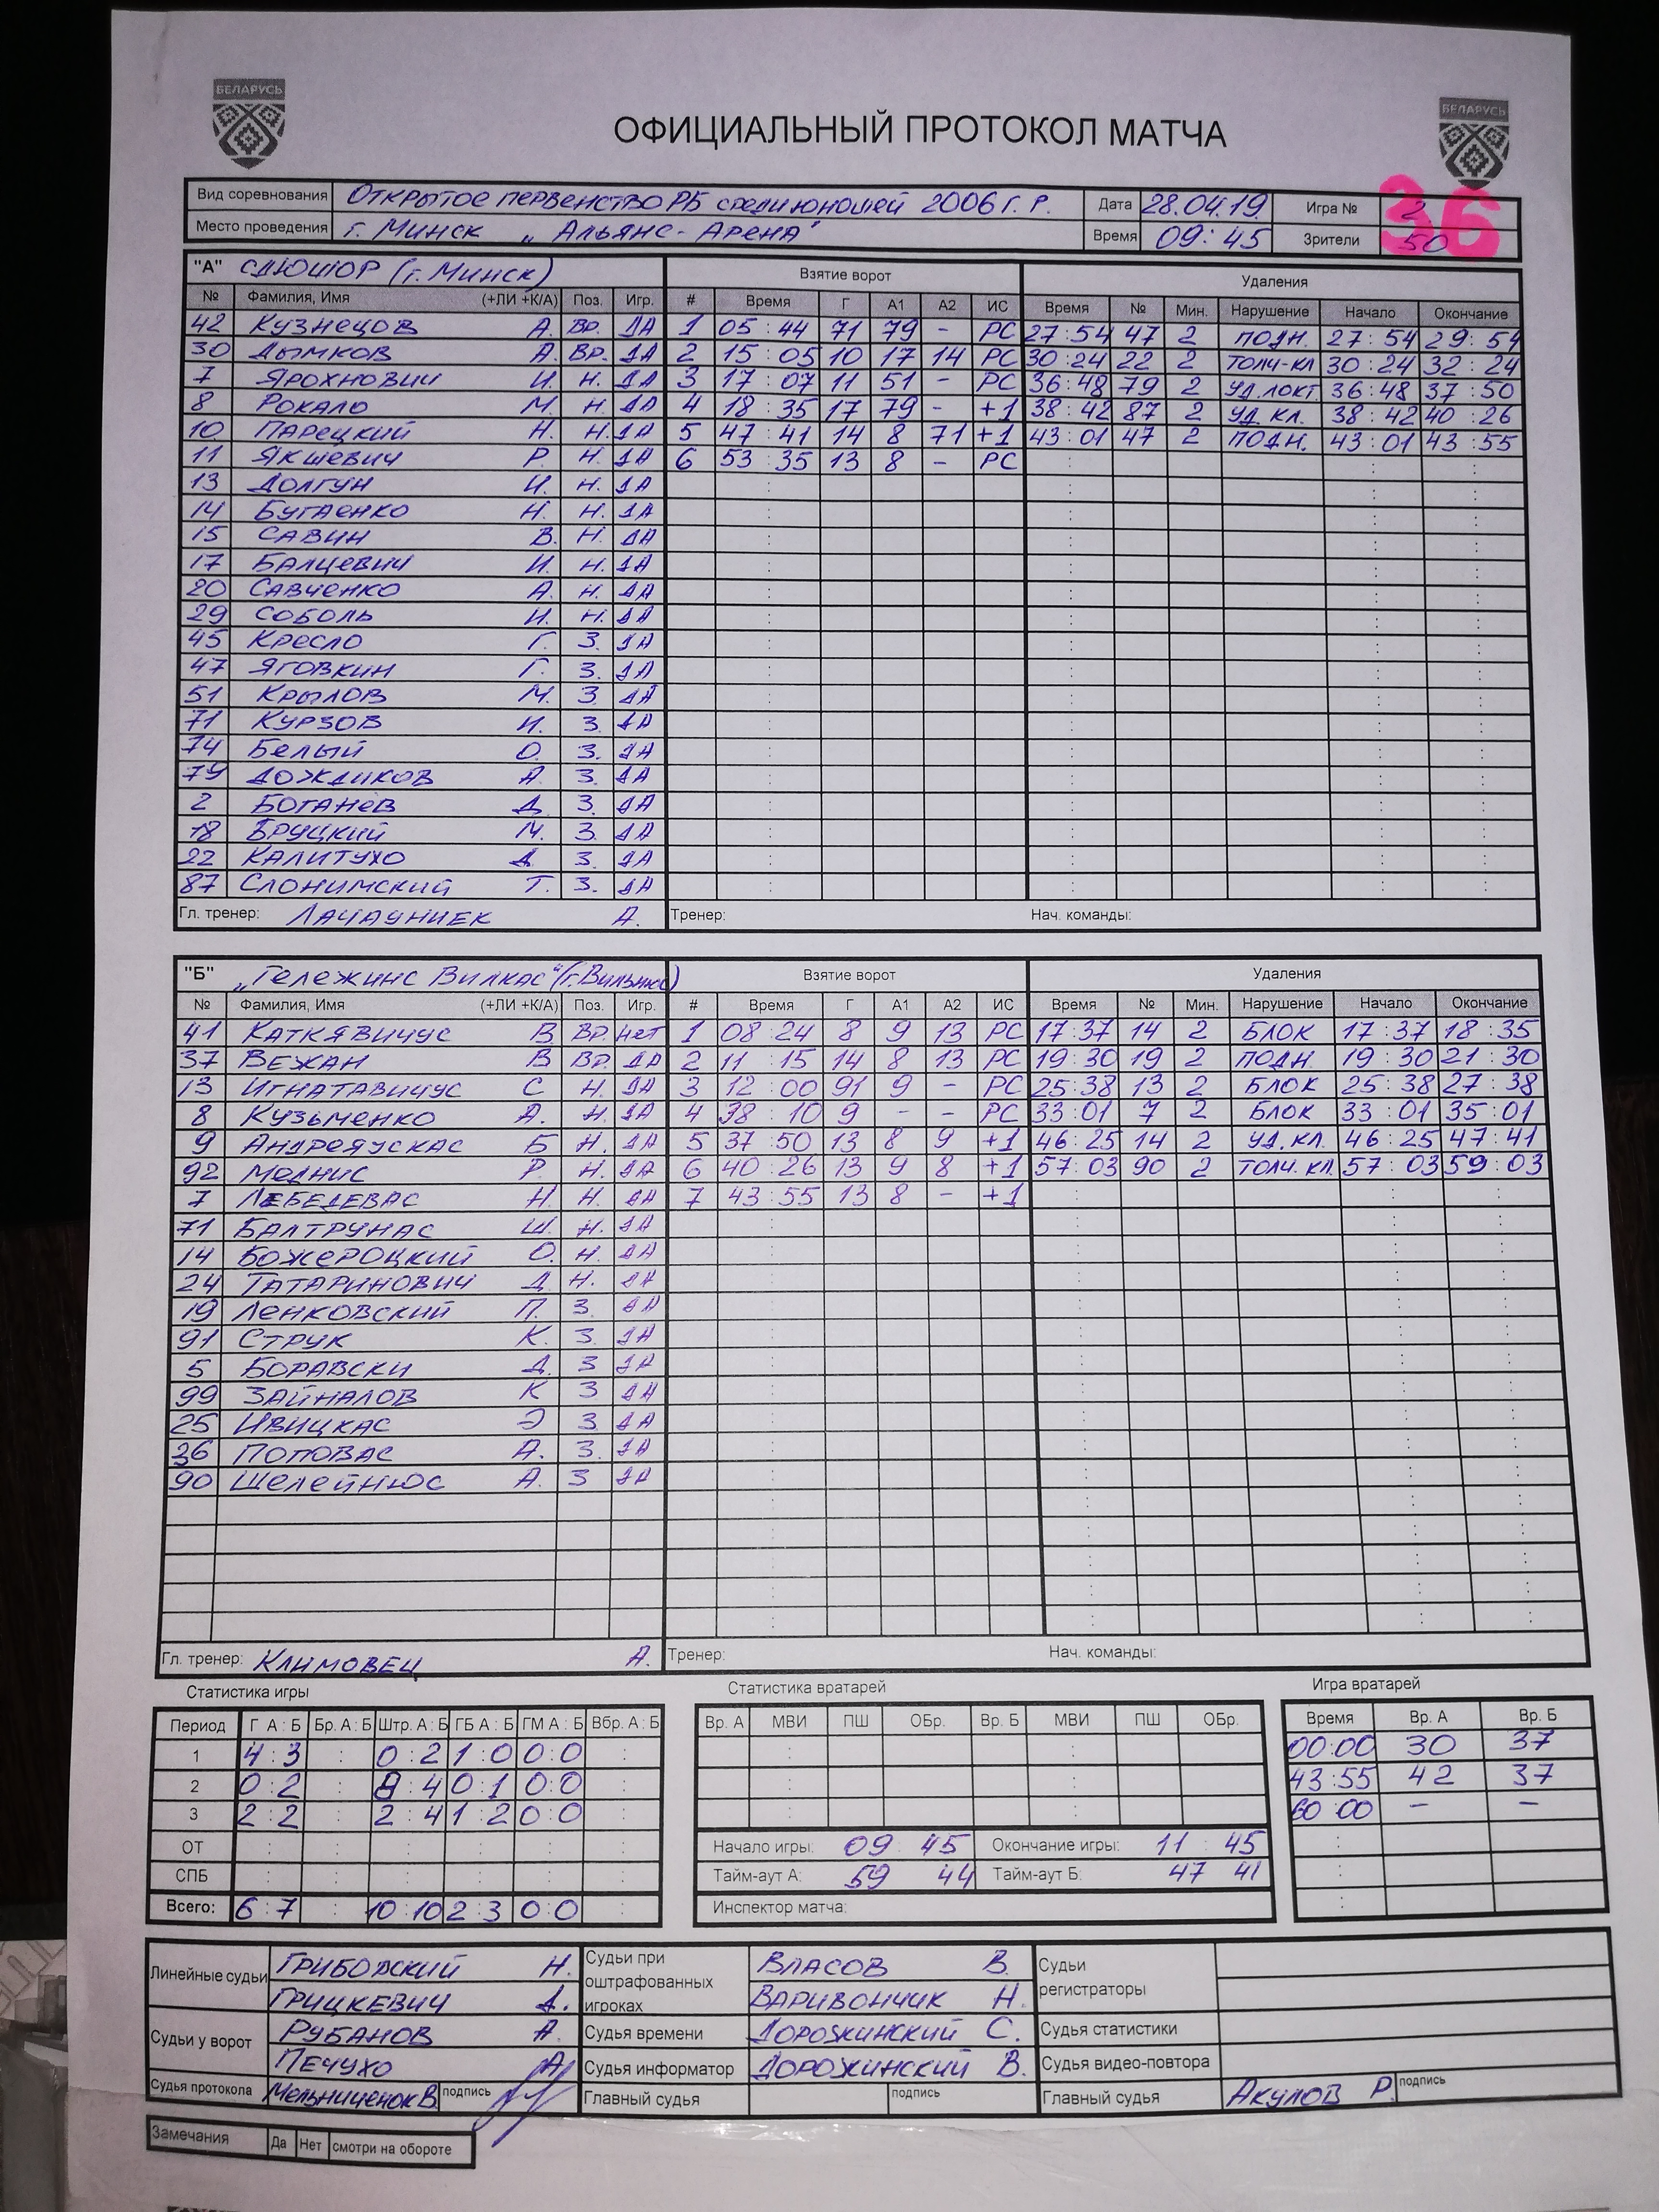 БЕЛАРУСЬ БЕЛАРУСЬ
ОФИЦИАЛЬНЫЙ ПРОТОКОЛ МАТЧА
Вид соревнования Открытое первенство РБ среди юношей 2006 г.р. Дата 28.04.19 Игра № 2 36
Место проведения г. Минск „Альянс-Арена" Время 09:45 Зрители 50
"А" СДЮШОР (г. Минск) Взятие ворот Удаления
№ Фамилия, Имя (+ЛИ +К/А) Поз. Игр. # Время Г А1 А2 ИС Время № Мин. Нарушение Начало Окончание
42 Кузнецов А. Вр. ДА 1 05:44 71 79 - РС 27:54 47 2 ПОДН. 27:54 29:54
30 Дымков А. Вр. ДА 2 15:05 10 17 14 РС 30:24 22 2 ТОЛЧ-КЛ 30:24 32:24
7 Ярохнович И. Н. ДА 3 17:07 11 51 - РС 36:48 79 2 УД.ЛОКТ. 36:48 37:50
8 Рокало М. Н. ДА 4 18:35 17 79 - +1 38:42 87 2 УД.КЛ. 38:42 40:26
10 Парецкий Н. Н. ДА 5 47:41 14 8 71 +1 43:01 47 2 ПОДН. 43:01 43:55
11 Якшевич Р. Н. ДА 6 53:35 13 8 - РС
13 Долгун И. Н. ДА
14 Бугаенко Н. Н. ДА
15 Савин В. Н. ДА
17 Балцевич И. Н. ДА
20 Савченко А. Н. ДА
29 Соболь И. Н. ДА
45 Кресло Г. З. ДА
47 Яговкин Г. З. ДА
51 Крылов М. З. ДА
71 Курзов И. З. ДА
74 Белый О. З. ДА
79 Дождиков А. З. ДА
2 Боганев Д. З. ДА
18 Бруцкий М. З. ДА
22 Калитухо Д. З. ДА
87 Слонимский Т. З. ДА
Гл. тренер: Лачауниек А. Тренер: Нач. команды:
"Б" „Гележинс Вилкас" (г. Вильнюс) Взятие ворот Удаления
№ Фамилия, Имя (+ЛИ +К/А) Поз. Игр. # Время Г А1 А2 ИС Время № Мин. Нарушение Начало Окончание
41 Каткявичус В. Вр. Нет 1 08:24 8 9 13 РС 17:37 14 2 БЛОК 17:37 18:35
37 Вежан В Вр. ДА 2 11:15 14 8 13 РС 19:30 19 2 ПОДН. 19:30 21:30
13 Игнатавичус С Н. ДА 3 12:00 91 9 - РС 25:38 13 2 БЛОК 25:38 27:38
8 Кузьменко А. Н. ДА 4 38:10 9 - - РС 33:01 7 2 БЛОК 33:01 35:01
9 Андреяускас Б Н. ДА 5 37:50 13 8 9 +1 46:25 14 2 УД.КЛ. 46:25 47:41
92 Меднис Р. Н. ДА 6 40:26 13 9 8 +1 57:03 90 2 ТОЛЧ.КЛ 57:03 59:03
7 Лебедевас Н. Н. ДА 7 43:55 13 8 - +1
71 Балтрунас Ш. Н. ДА
14 Божероцкий О. Н. ДА
24 Татаринович Д. Н. ДА
19 Ленковский П. З. ДА
91 Струк К. З. ДА
5 Боравски Д. З ДА
99 Зайналов К З ДА
25 Ивицкас Э З ДА
36 Поповас А. З. ДА
90 Шелейнюс А. З ДА
Гл. тренер: Климовец А. Тренер: Нач. команды:
Статистика игры Статистика вратарей Игра вратарей
Период Г А : Б Бр. А : Б Штр. А : Б ГБ А : Б ГМ А : Б Вбр. А : Б Вр. А МВИ ПШ ОБр. Вр. Б МВИ ПШ ОБр. Время Вр. А Вр. Б
1 4:3 : 0:2 1:0 0:0 : 00:00 30 37
2 0:2 : 8:4 0:1 0:0 : 43:55 42 37
3 2:2 : 2:4 1:2 0:0 : 60:00 - -
ОТ Начало игры: 09 45 Окончание игры: 11:45
СПБ Тайм-аут А: 59 44 Тайм-аут Б: 47 41
Всего: 6:7 : 10:10 2:3 0:0 : Инспектор матча:
Линейные судьи Грибовский Н. Судьи при оштрафованных игроках Власов В. Судьи регистраторы
Грицкевич Д. Варивончик Н.
Судьи у ворот Рубанов А. Судья времени Дорожинский С. Судья статистики
Печухо А. Судья информатор Дорожинский В. Судья видео-повтора
Судья протокола Мельниценок В. подпись Главный судья подпись Главный судья Акулов Р. подпись
Замечания Да Нет смотри на обороте